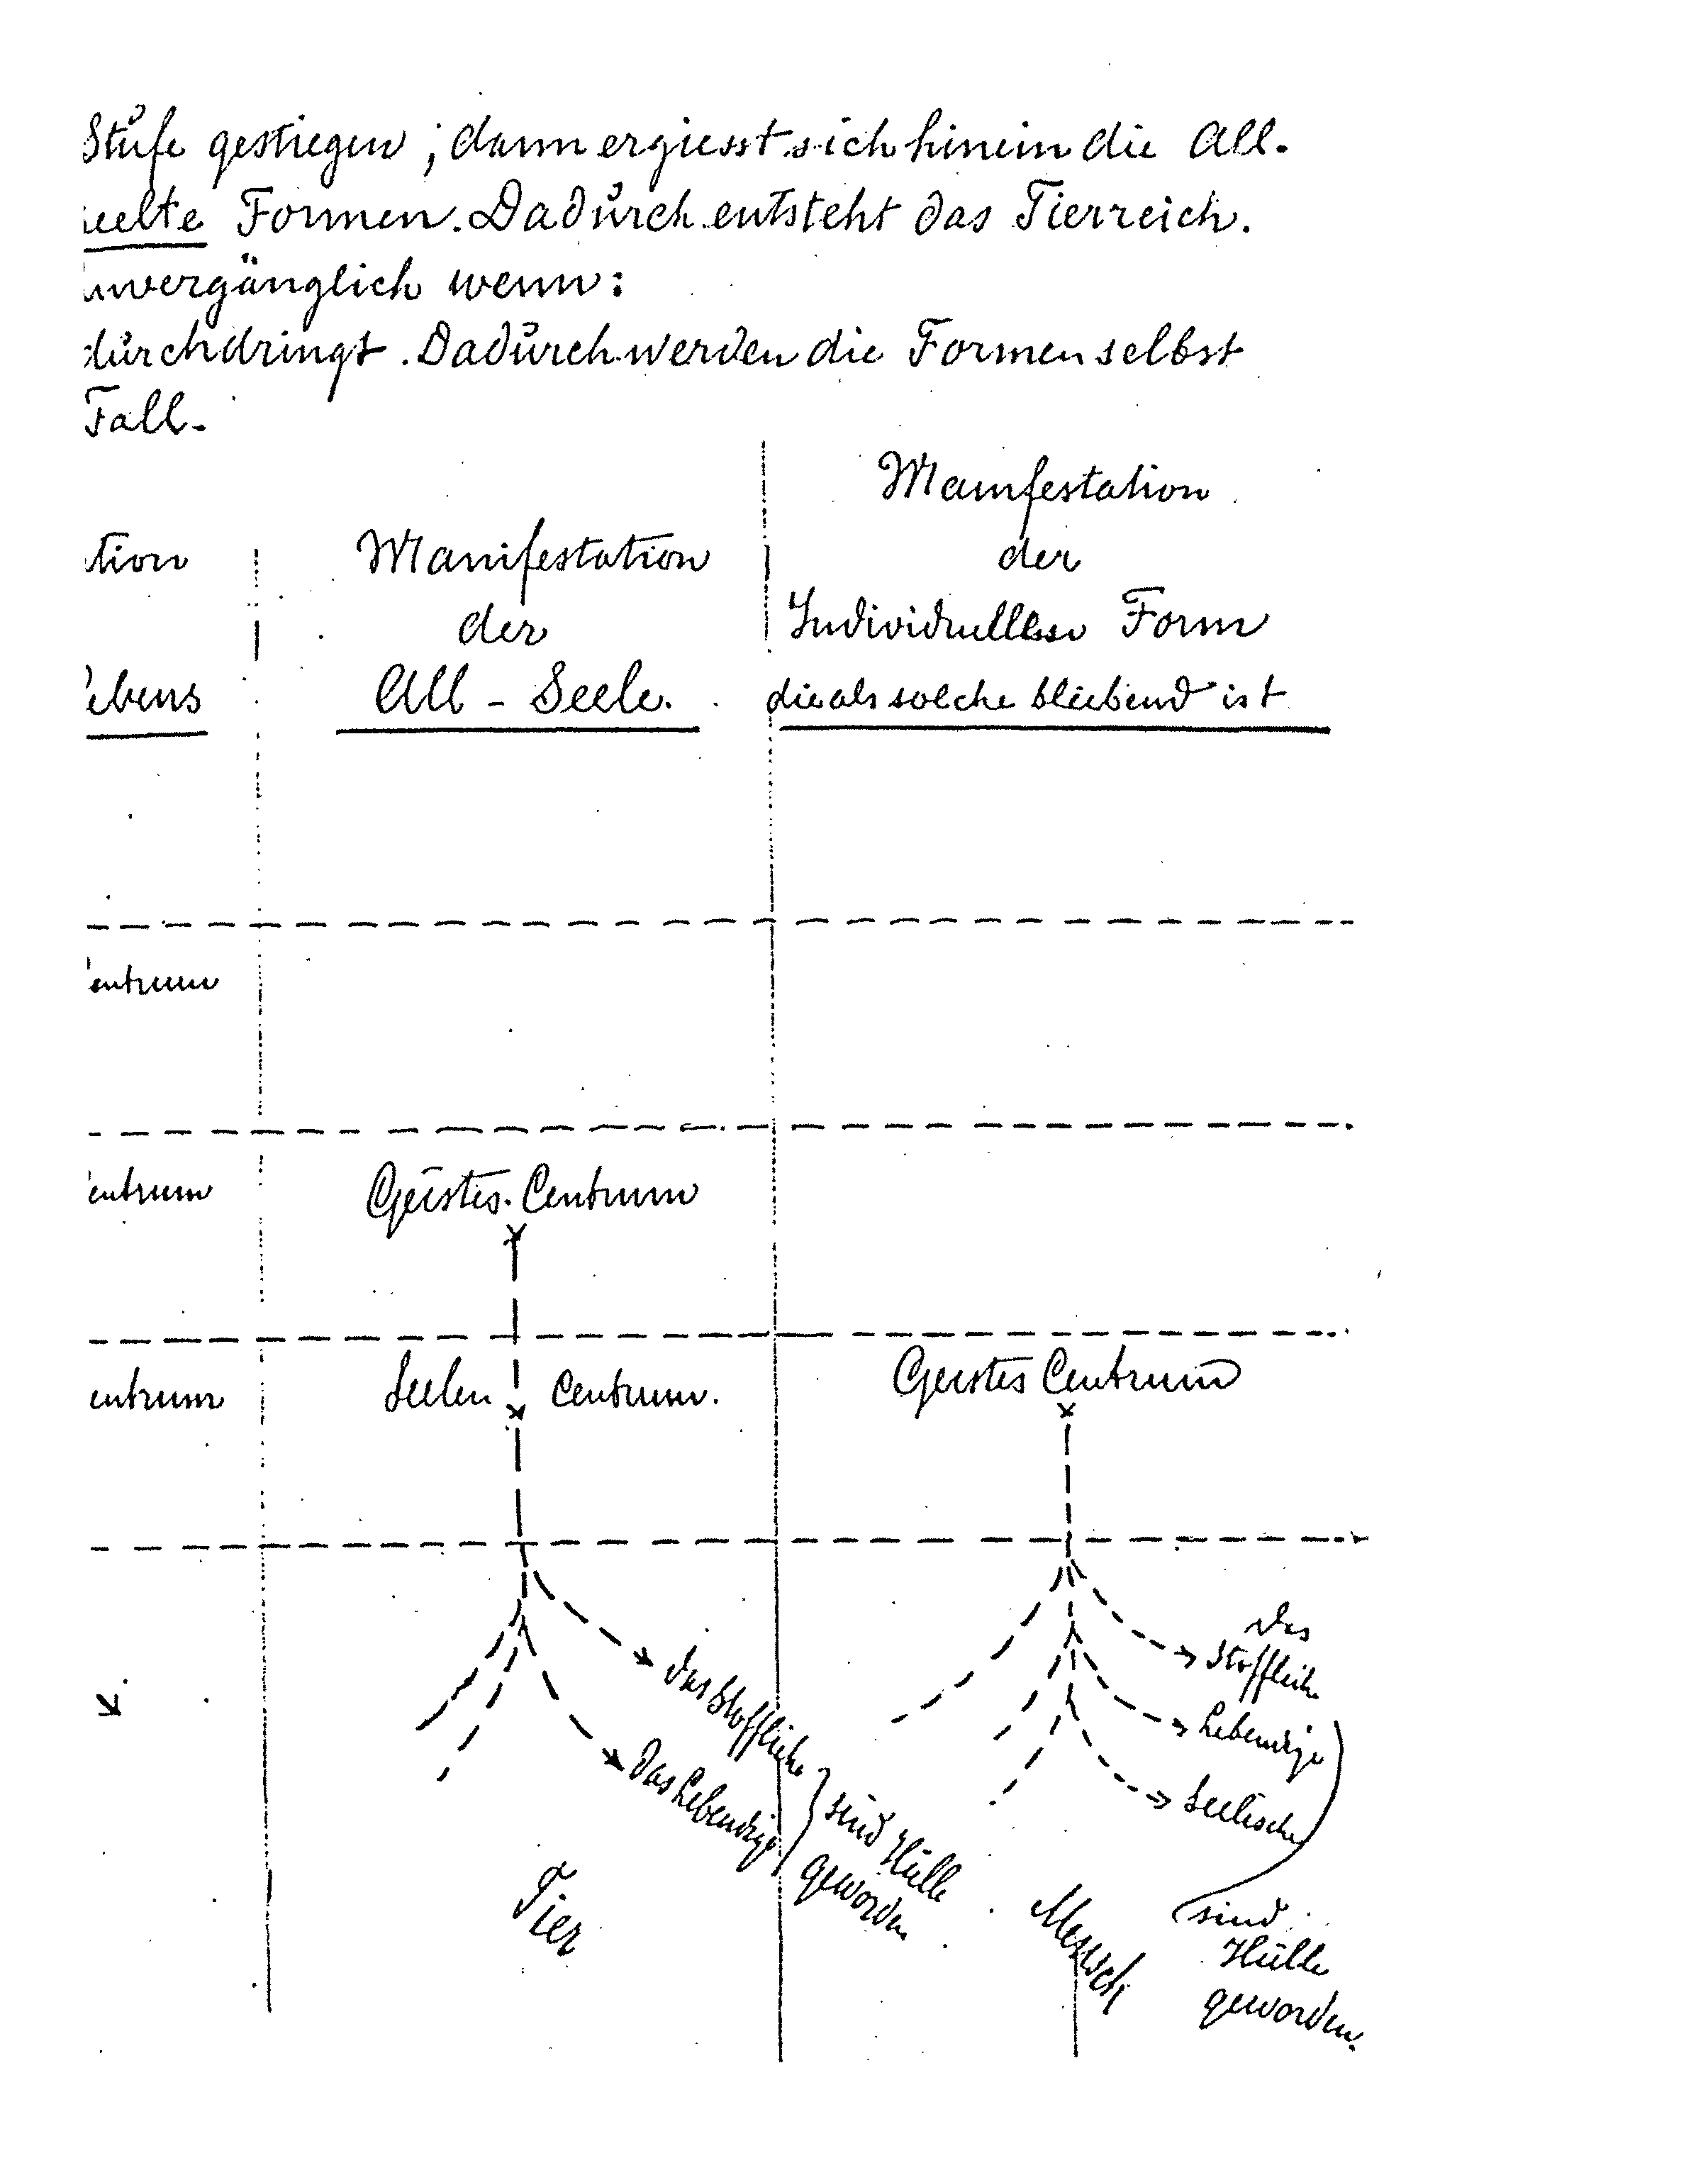 Stufe gestiegen, dann ergiesst sich hinein die All-
eelte Formen. Dadurch entsteht das Tierreich.
unvergänglich wenn:
durchdringt. Dadurch werden die Formen selbst
Fall.
tion
ebens
Manifestation
der
All - Seele.
Manifestation
der
Individuellen Form
die als solche bleibend ist
entrum
entrum
Geistes-Centrum
entrum
Seelen Centrum.
Geistes Centrum
das Stoffliche
das Lebendige
sind Hülle
geworden
Tier
das
Stoffliche
Lebendige
Seelische
sind
Hülle
geworden.
Mensch